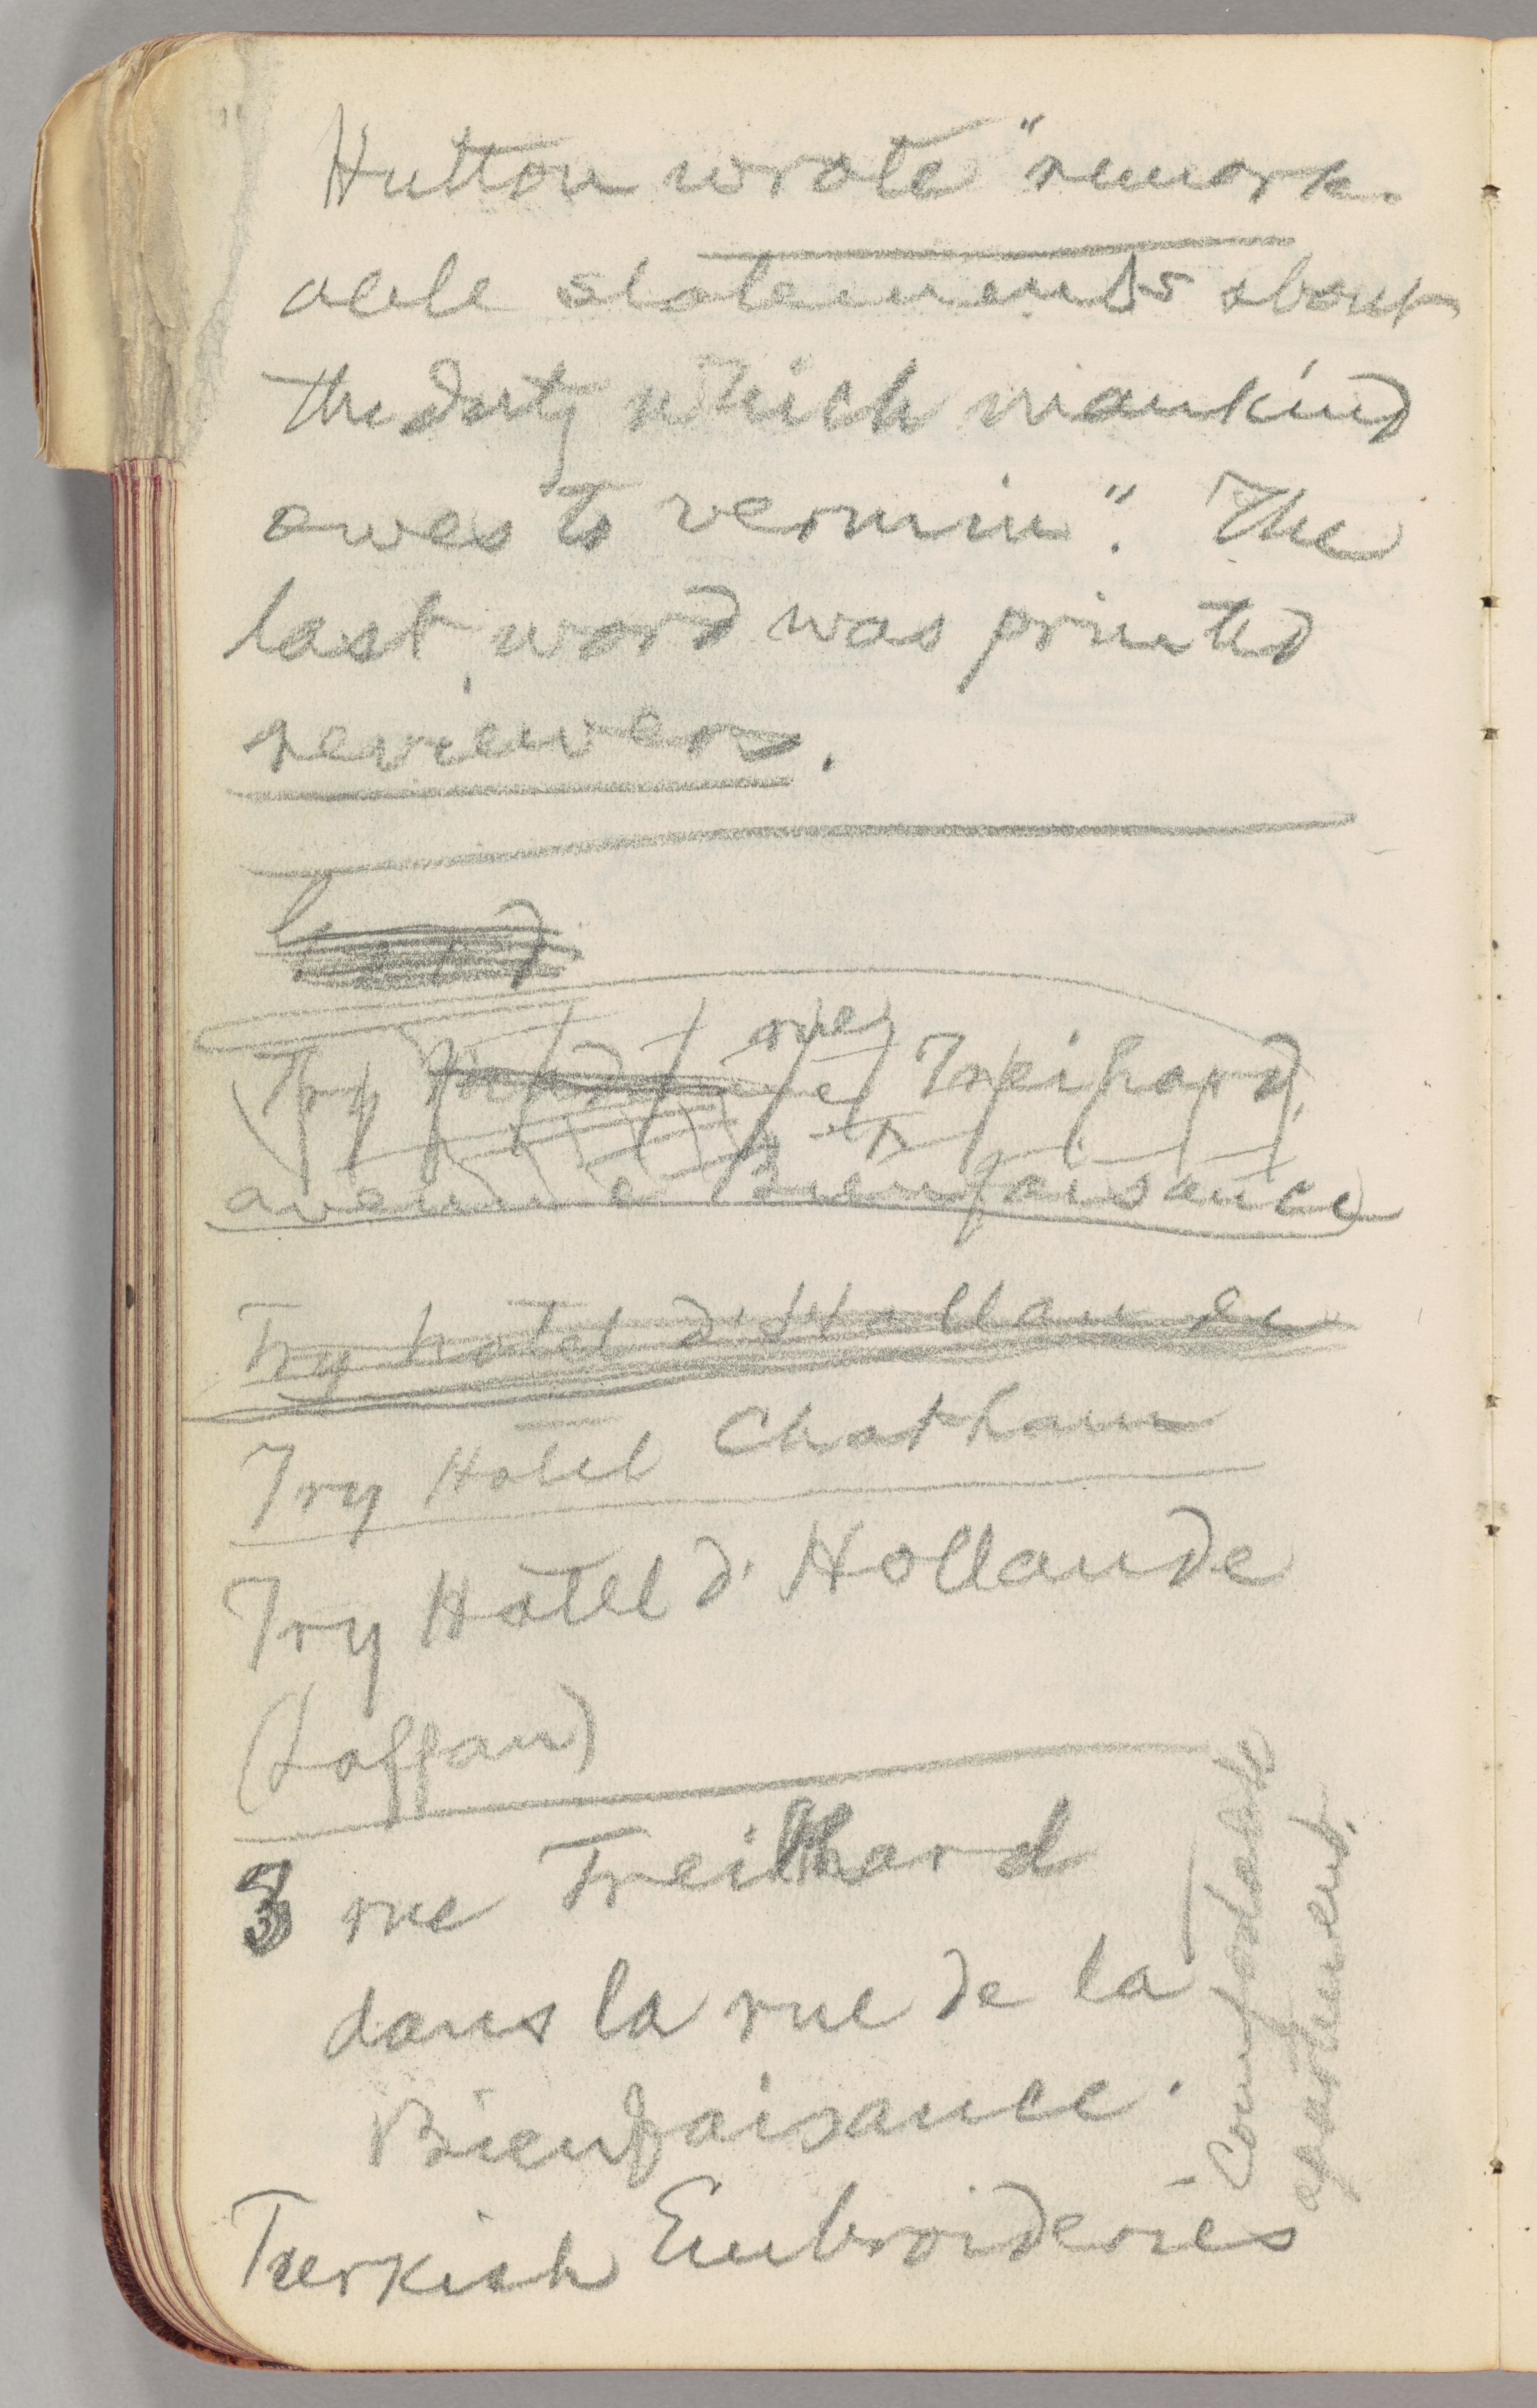 Hutton wrote "remark-
able statements about
the duty which mankind
owes to vermin". The
last word was printed
reviewers.
Try rue Treilhard,
avenue Bienfaisance
Try hotel d'Hollande
Try Hotel Chatham
Try Hôtel d'Hollande
(Laffan)
3 rue Treilhard
dans la rue de la
Bienfaisance.
Comfortable
apartment.
Turkish Embroideries